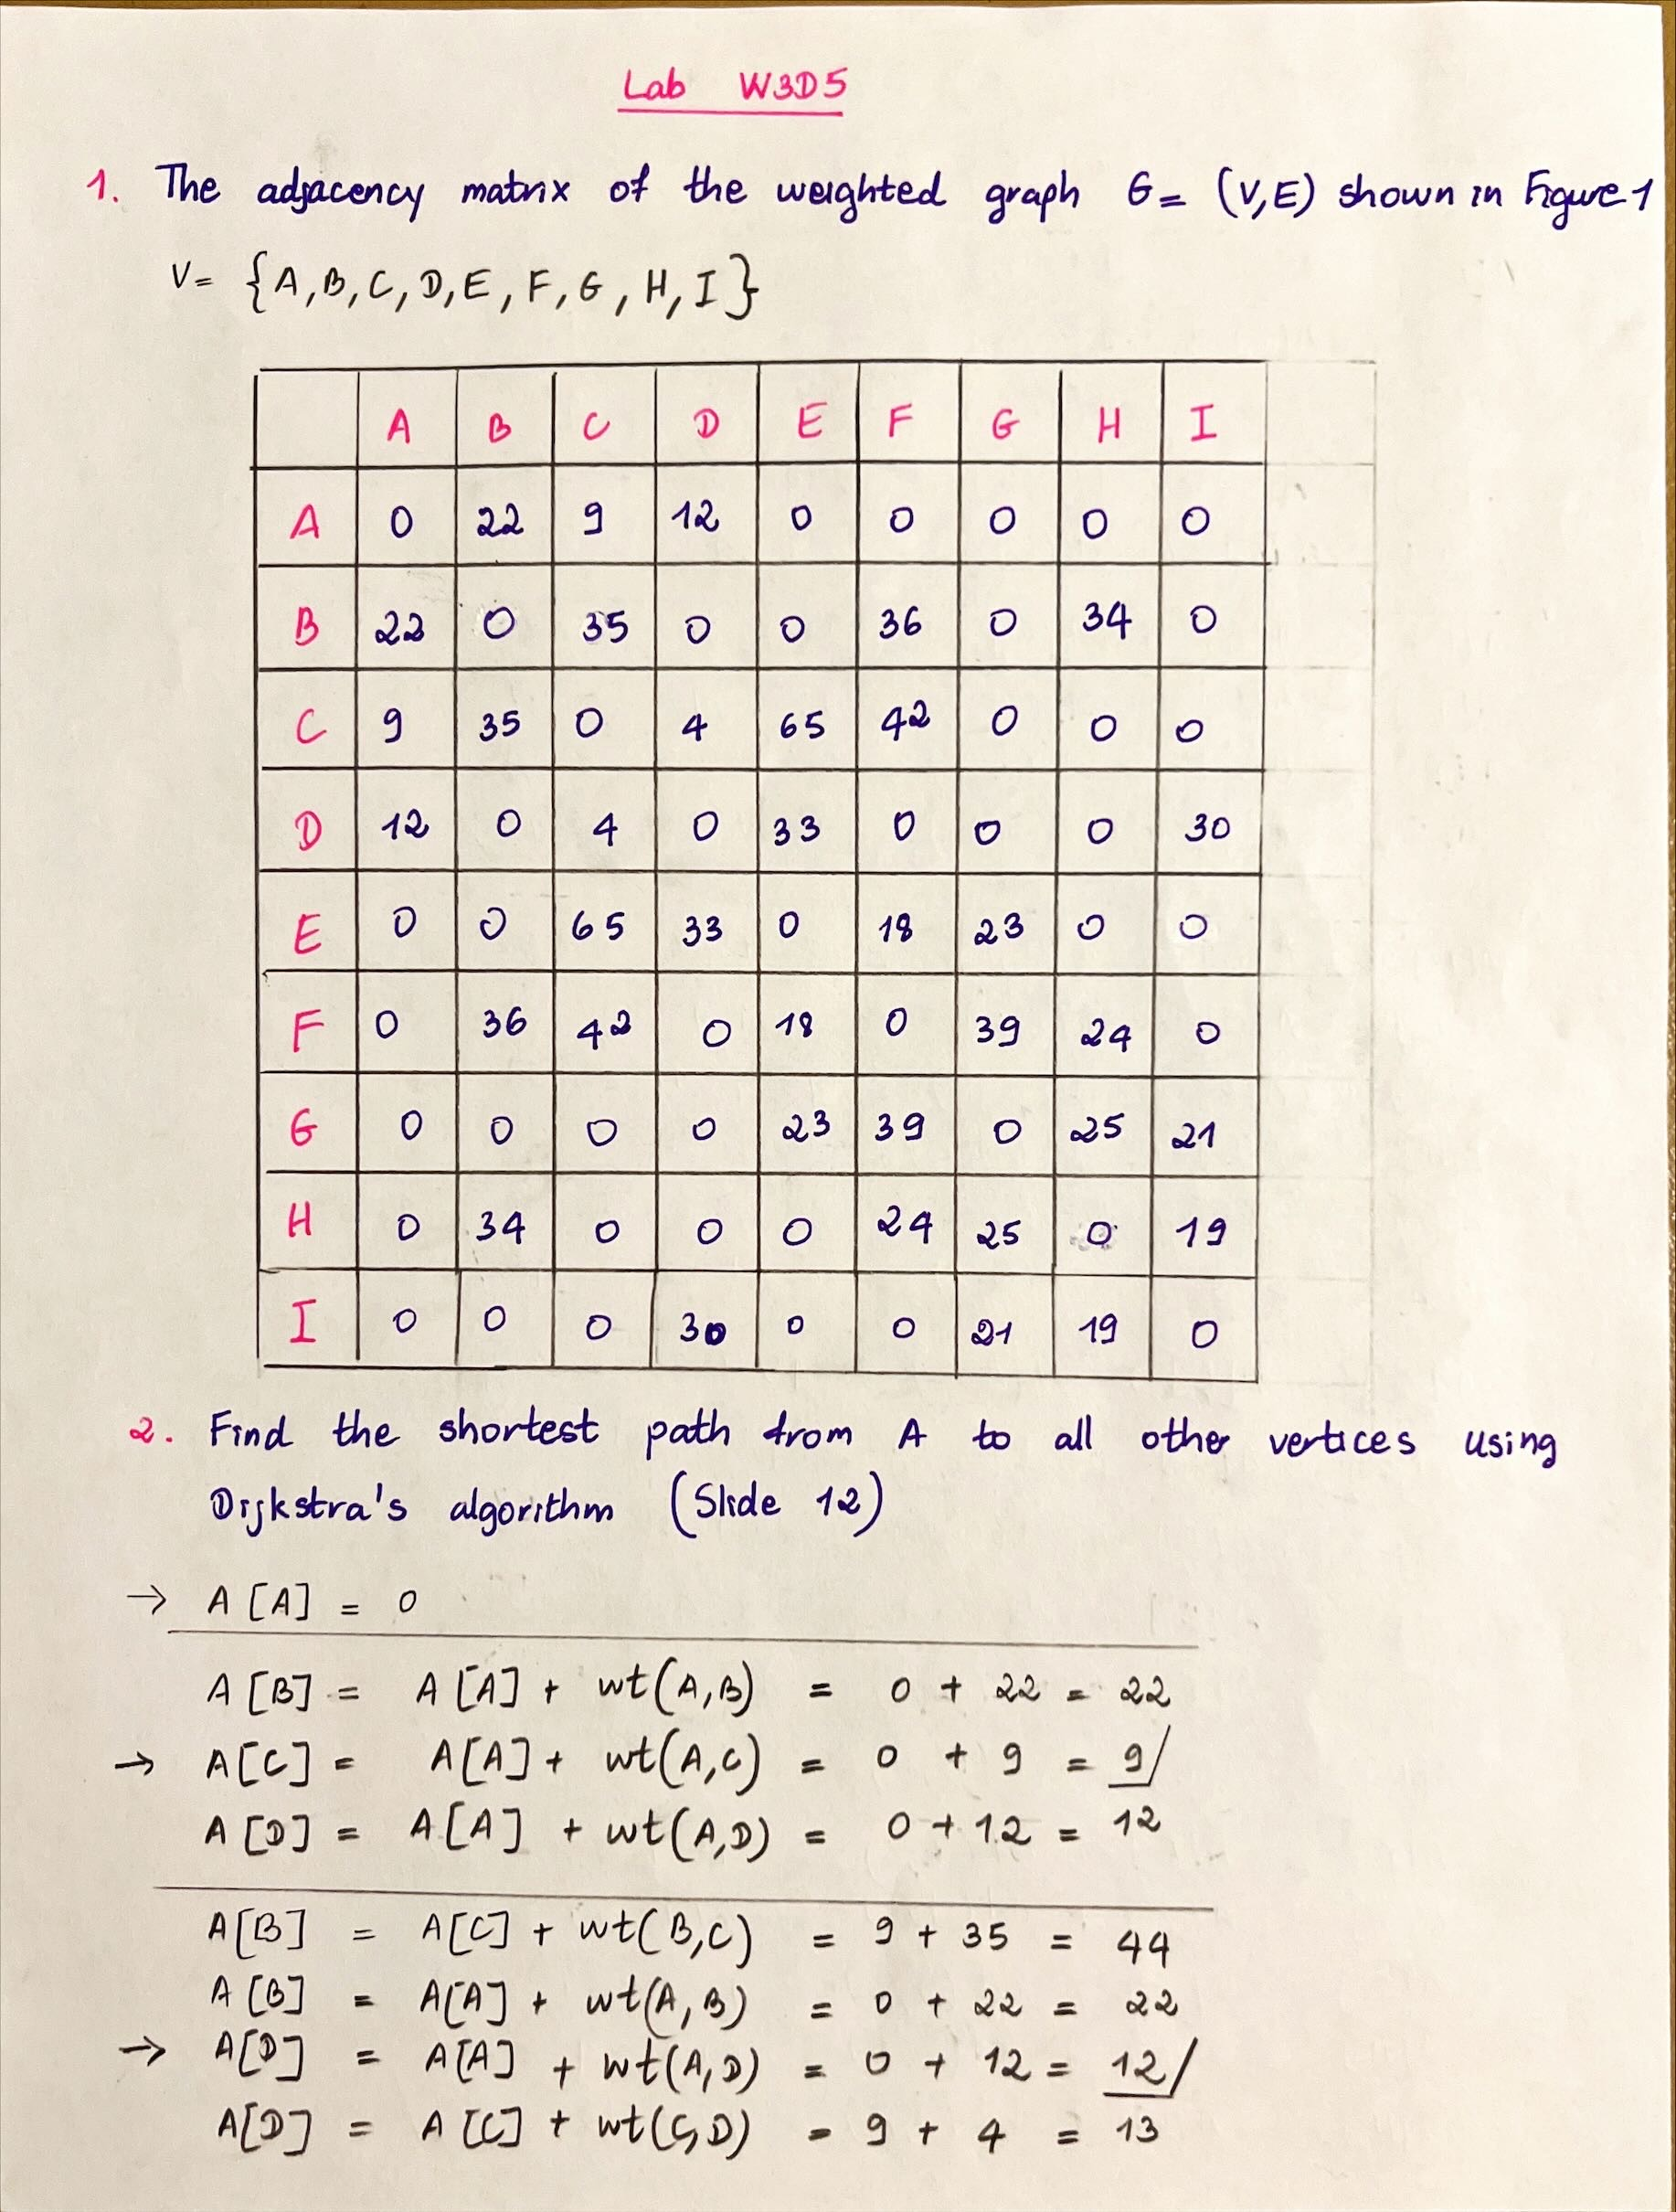 Lab W3D5
1. The adjacency matrix of the weighted graph G = (V,E) shown in Figure 1
V = {A, B, C, D, E, F, G, H, I}
A B C D E F G H I
A 0 22 9 12 0 0 0 0 0
B 22 0 35 0 0 36 0 34 0
C 9 35 0 4 65 42 0 0 0
D 12 0 4 0 33 0 0 0 30
E 0 0 65 33 0 18 23 0 0
F 0 36 42 0 18 0 39 24 0
G 0 0 0 0 23 39 0 25 21
H 0 34 0 0 0 24 25 0 19
I 0 0 0 30 0 0 21 19 0
2. Find the shortest path from A to all other vertices using
Dijkstra's algorithm (Slide 12)
→ A[A] = 0
A[B] = A[A] + wt(A,B) = 0 + 22 = 22
→ A[C] = A[A] + wt(A,C) = 0 + 9 = 9/
A[D] = A[A] + wt(A,D) = 0 + 12 = 12
A[B] = A[C] + wt(B,C) = 9 + 35 = 44
A[B] = A[A] + wt(A,B) = 0 + 22 = 22
→ A[D] = A[A] + wt(A,D) = 0 + 12 = 12/
A[D] = A[C] + wt(C,D) = 9 + 4 = 13